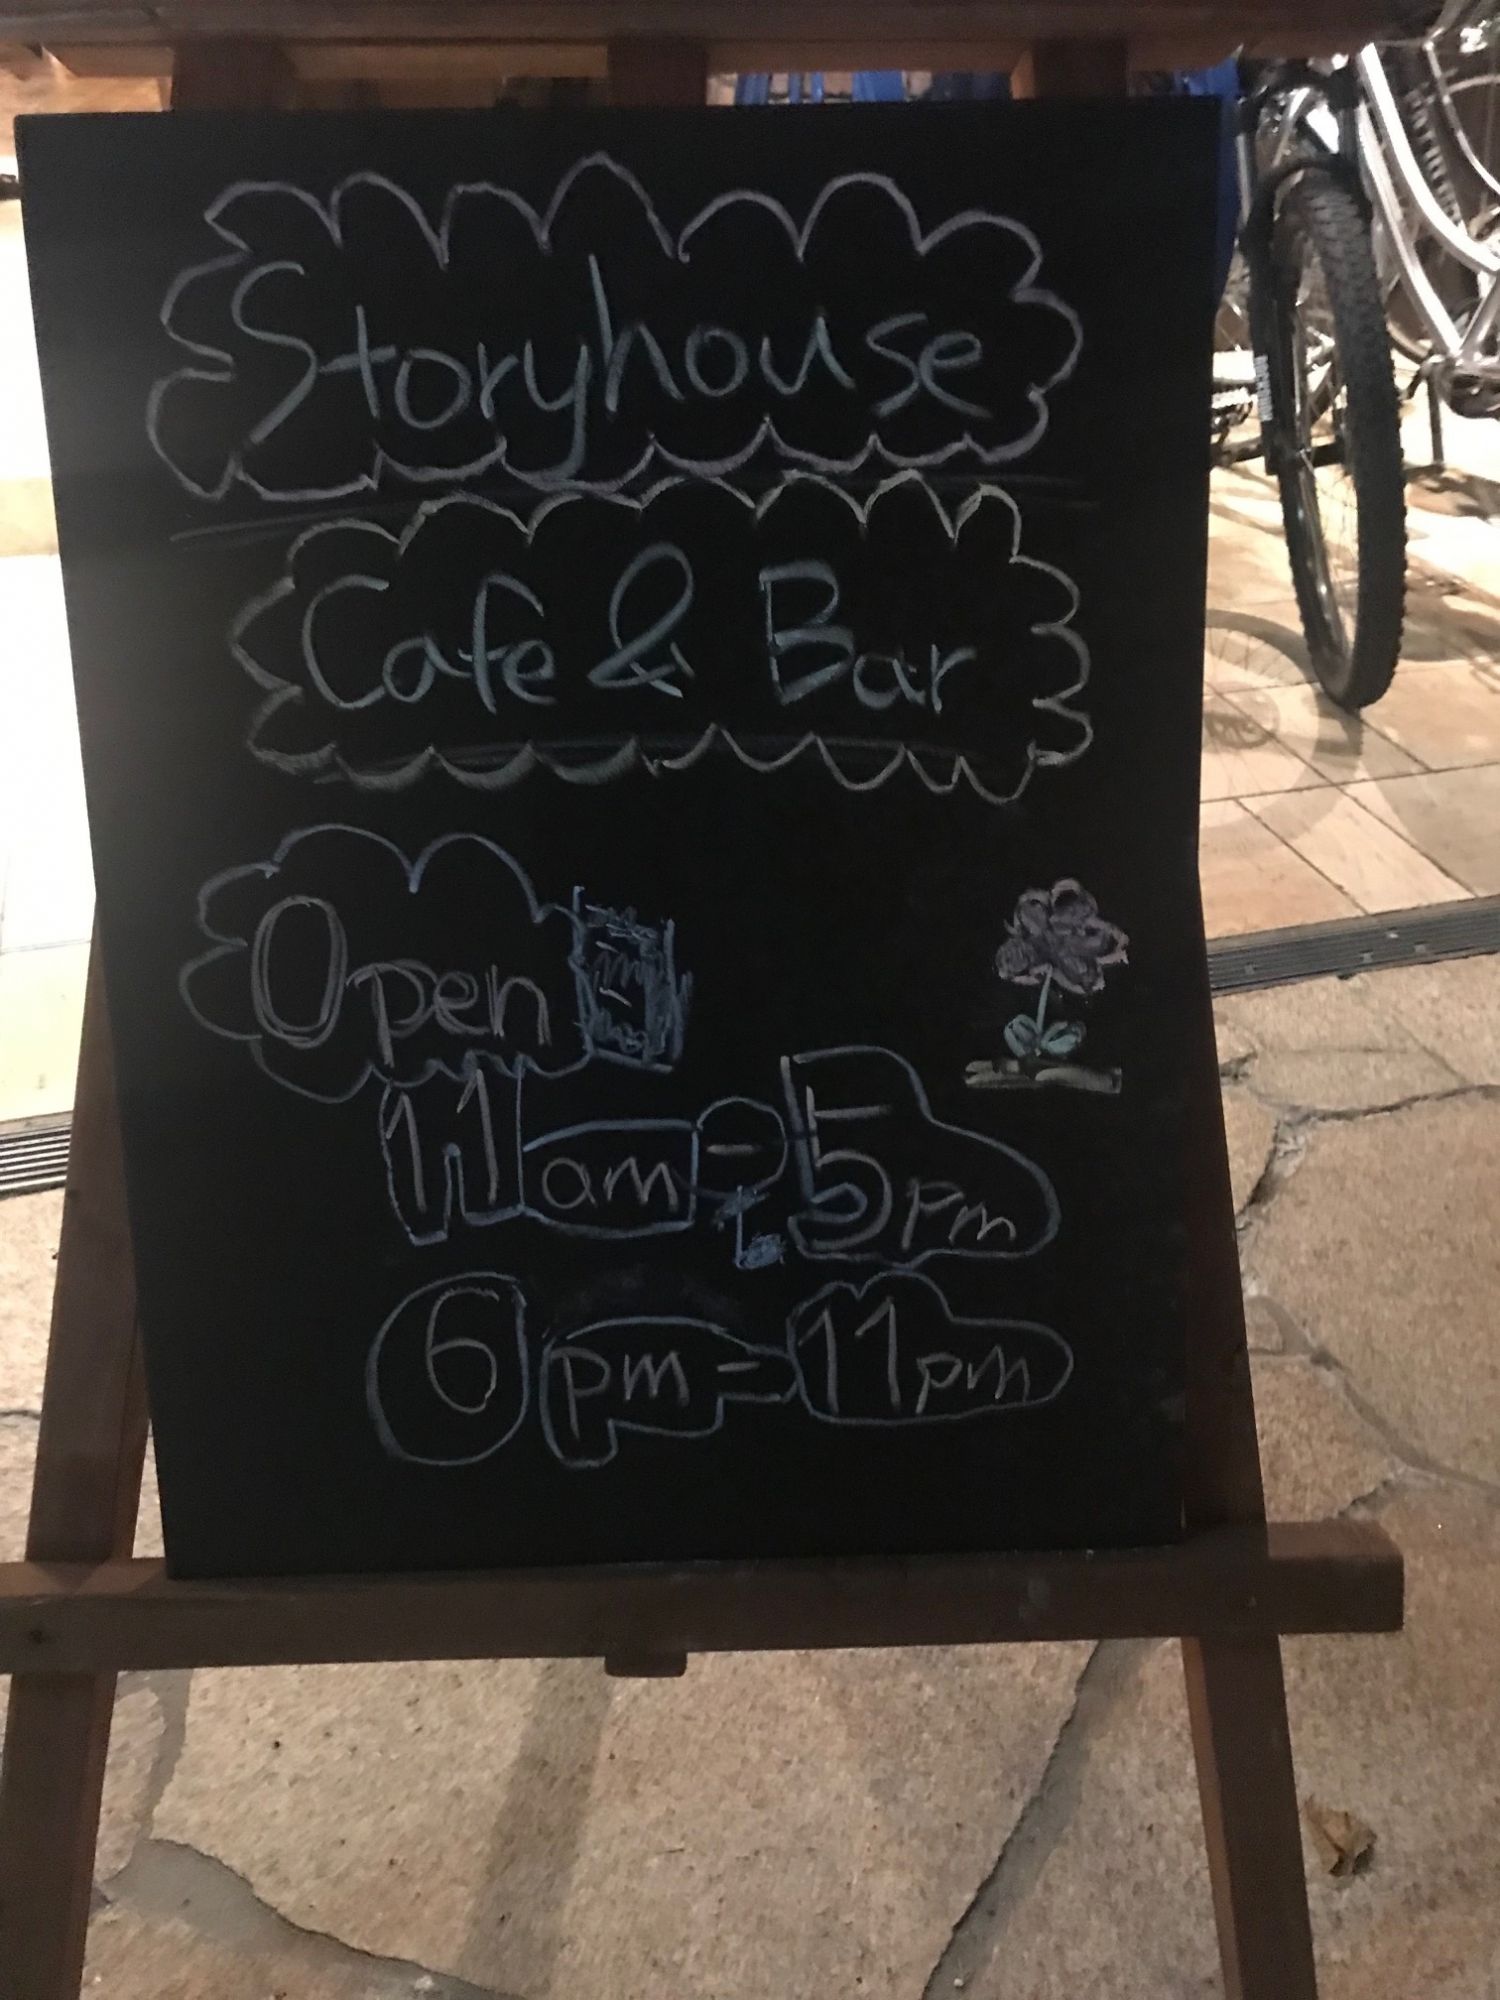 Storyhouse
Cafe & Bar
Open
11am-5pm
6pm-11pm